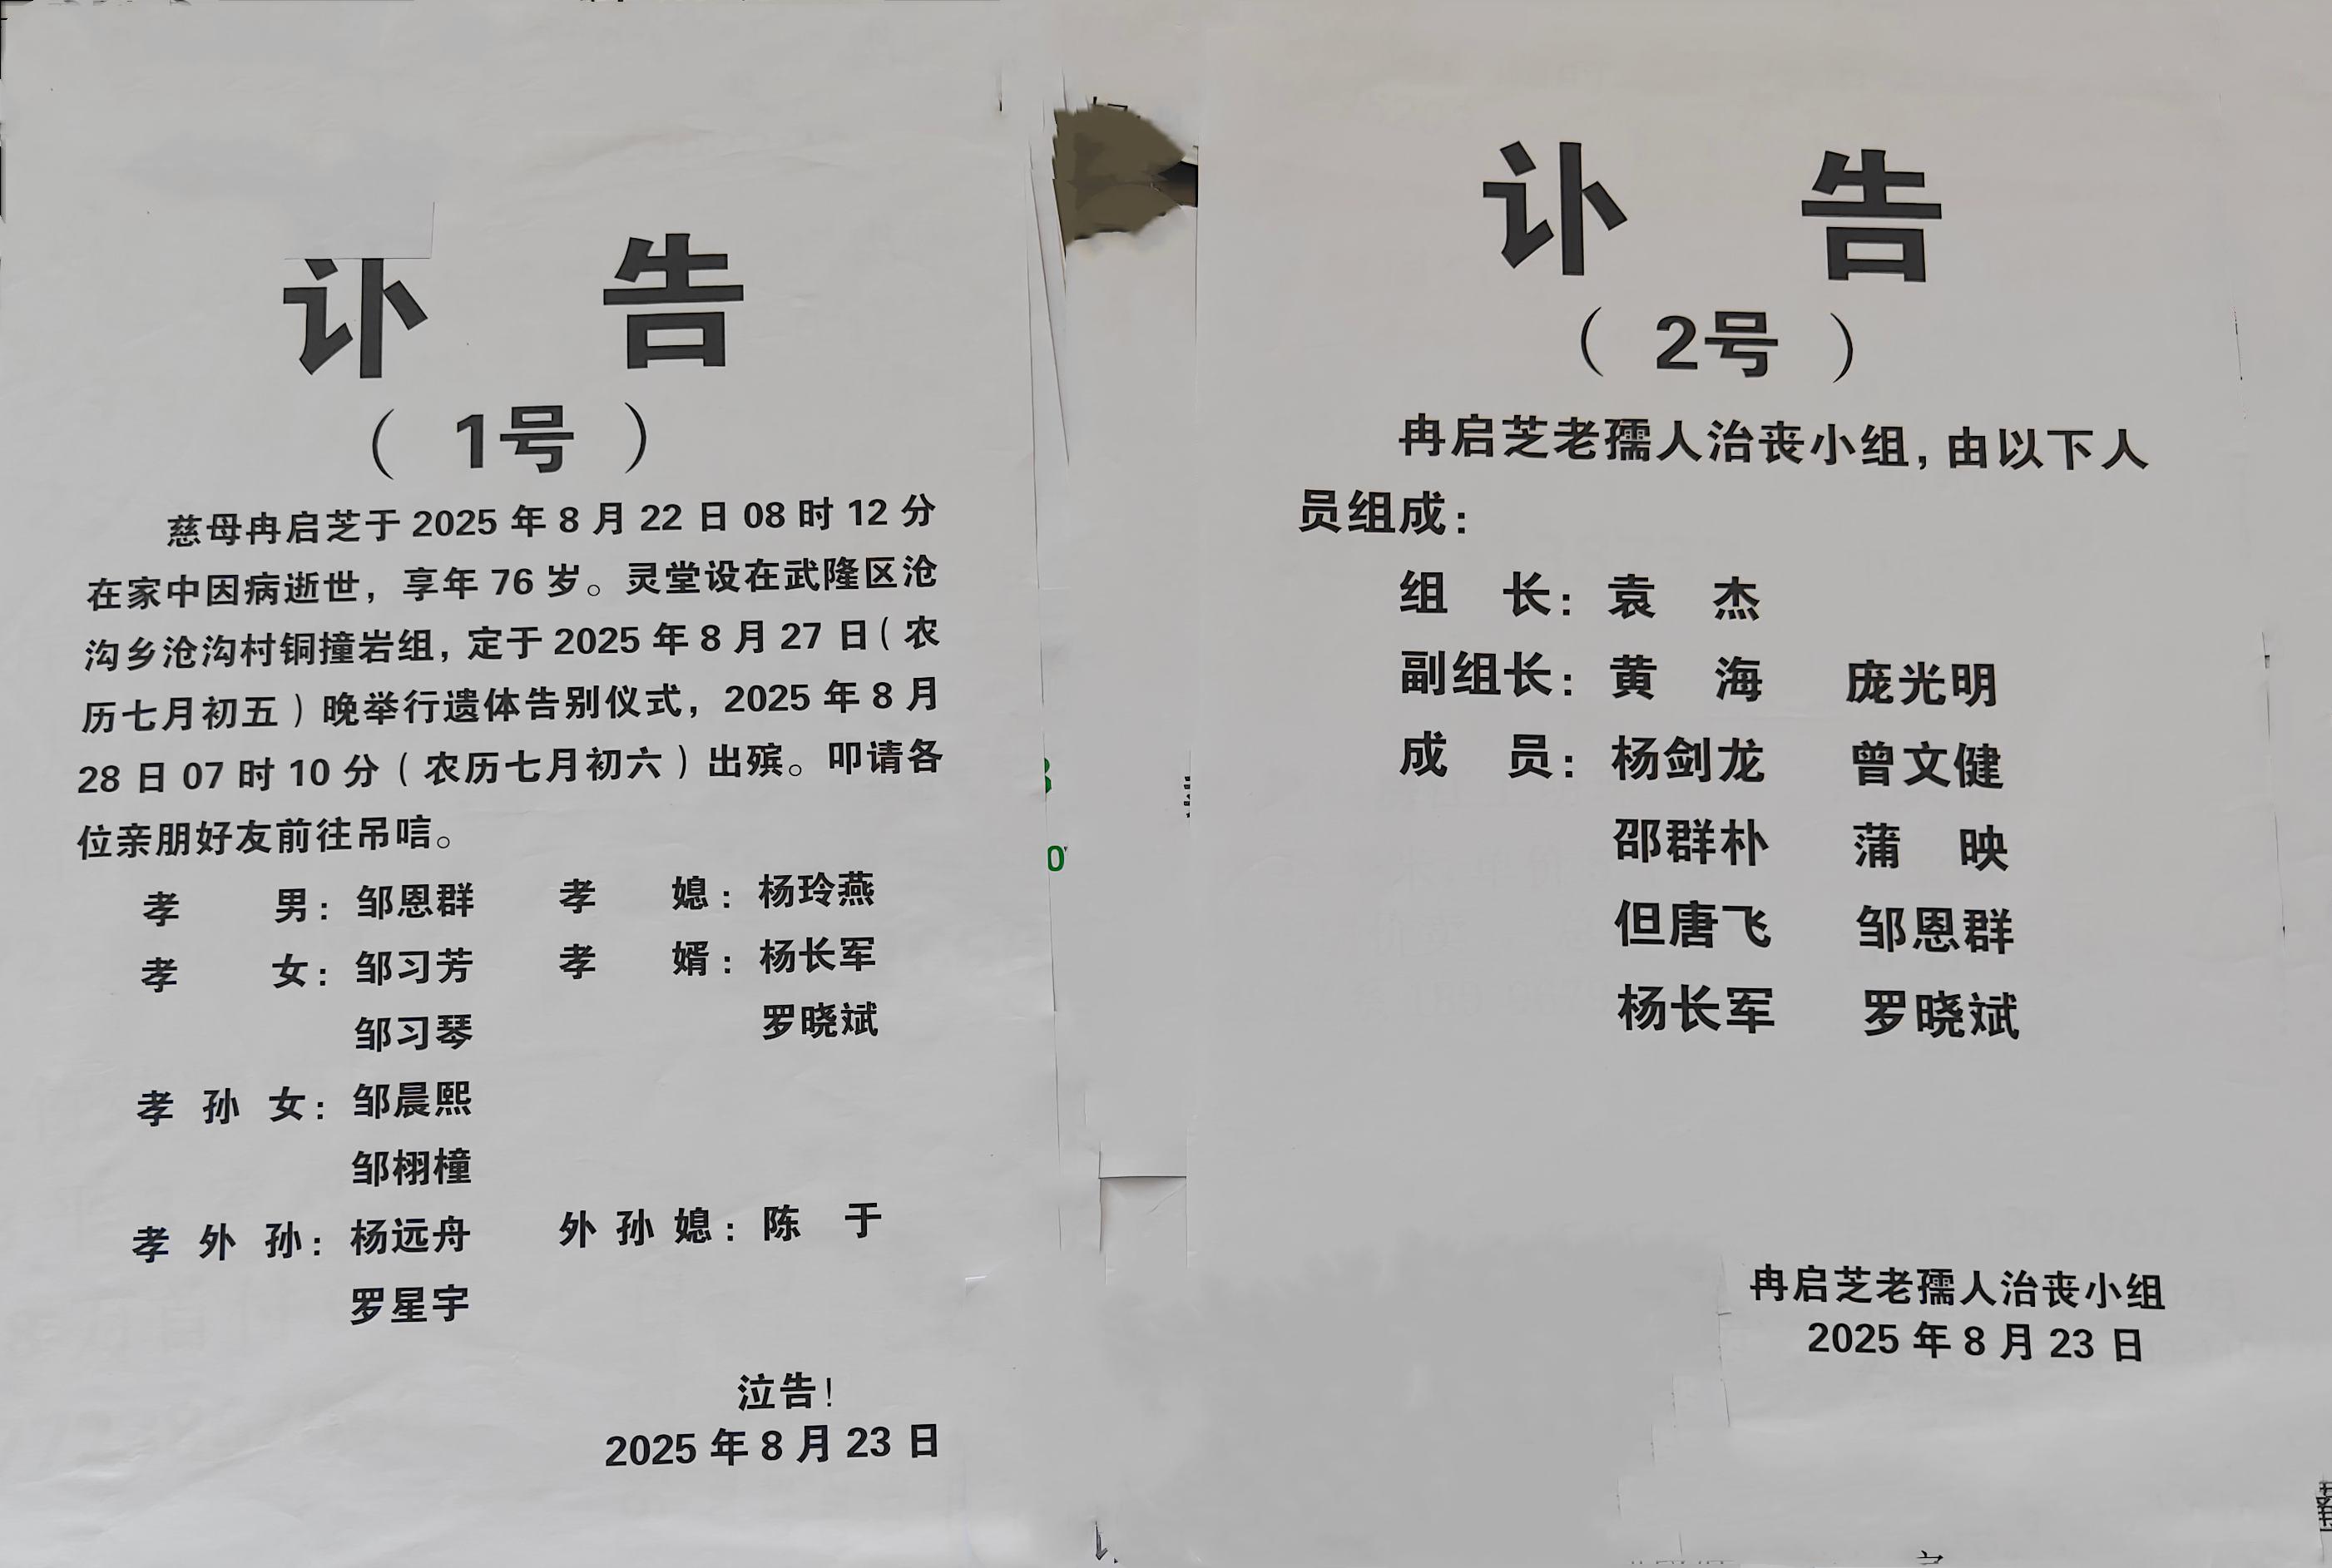 讣 告
（ 1号 ）
慈母冉启芝于 2025 年 8 月 22 日 08 时 12 分
在家中因病逝世，享年 76 岁。灵堂设在武隆区沧
沟乡沧沟村铜撞岩组，定于 2025 年 8 月 27 日（农
历七月初五）晚举行遗体告别仪式，2025 年 8 月
28 日 07 时 10 分（农历七月初六）出殡。叩请各
位亲朋好友前往吊唁。
孝 男：邹恩群 孝 媳：杨玲燕
孝 女：邹习芳 孝 婿：杨长军
邹习琴 罗晓斌
孝 孙 女：邹晨熙
邹栩橦
孝 外 孙：杨远舟 外 孙 媳：陈 于
罗星宇
泣告！
2025 年 8 月 23 日
讣 告
（ 2号 ）
冉启芝老孺人治丧小组，由以下人
员组成：
组 长：袁 杰
副组长：黄 海 庞光明
成 员：杨剑龙 曾文健
邵群朴 蒲 映
但唐飞 邹恩群
杨长军 罗晓斌
冉启芝老孺人治丧小组
2025 年 8 月 23 日